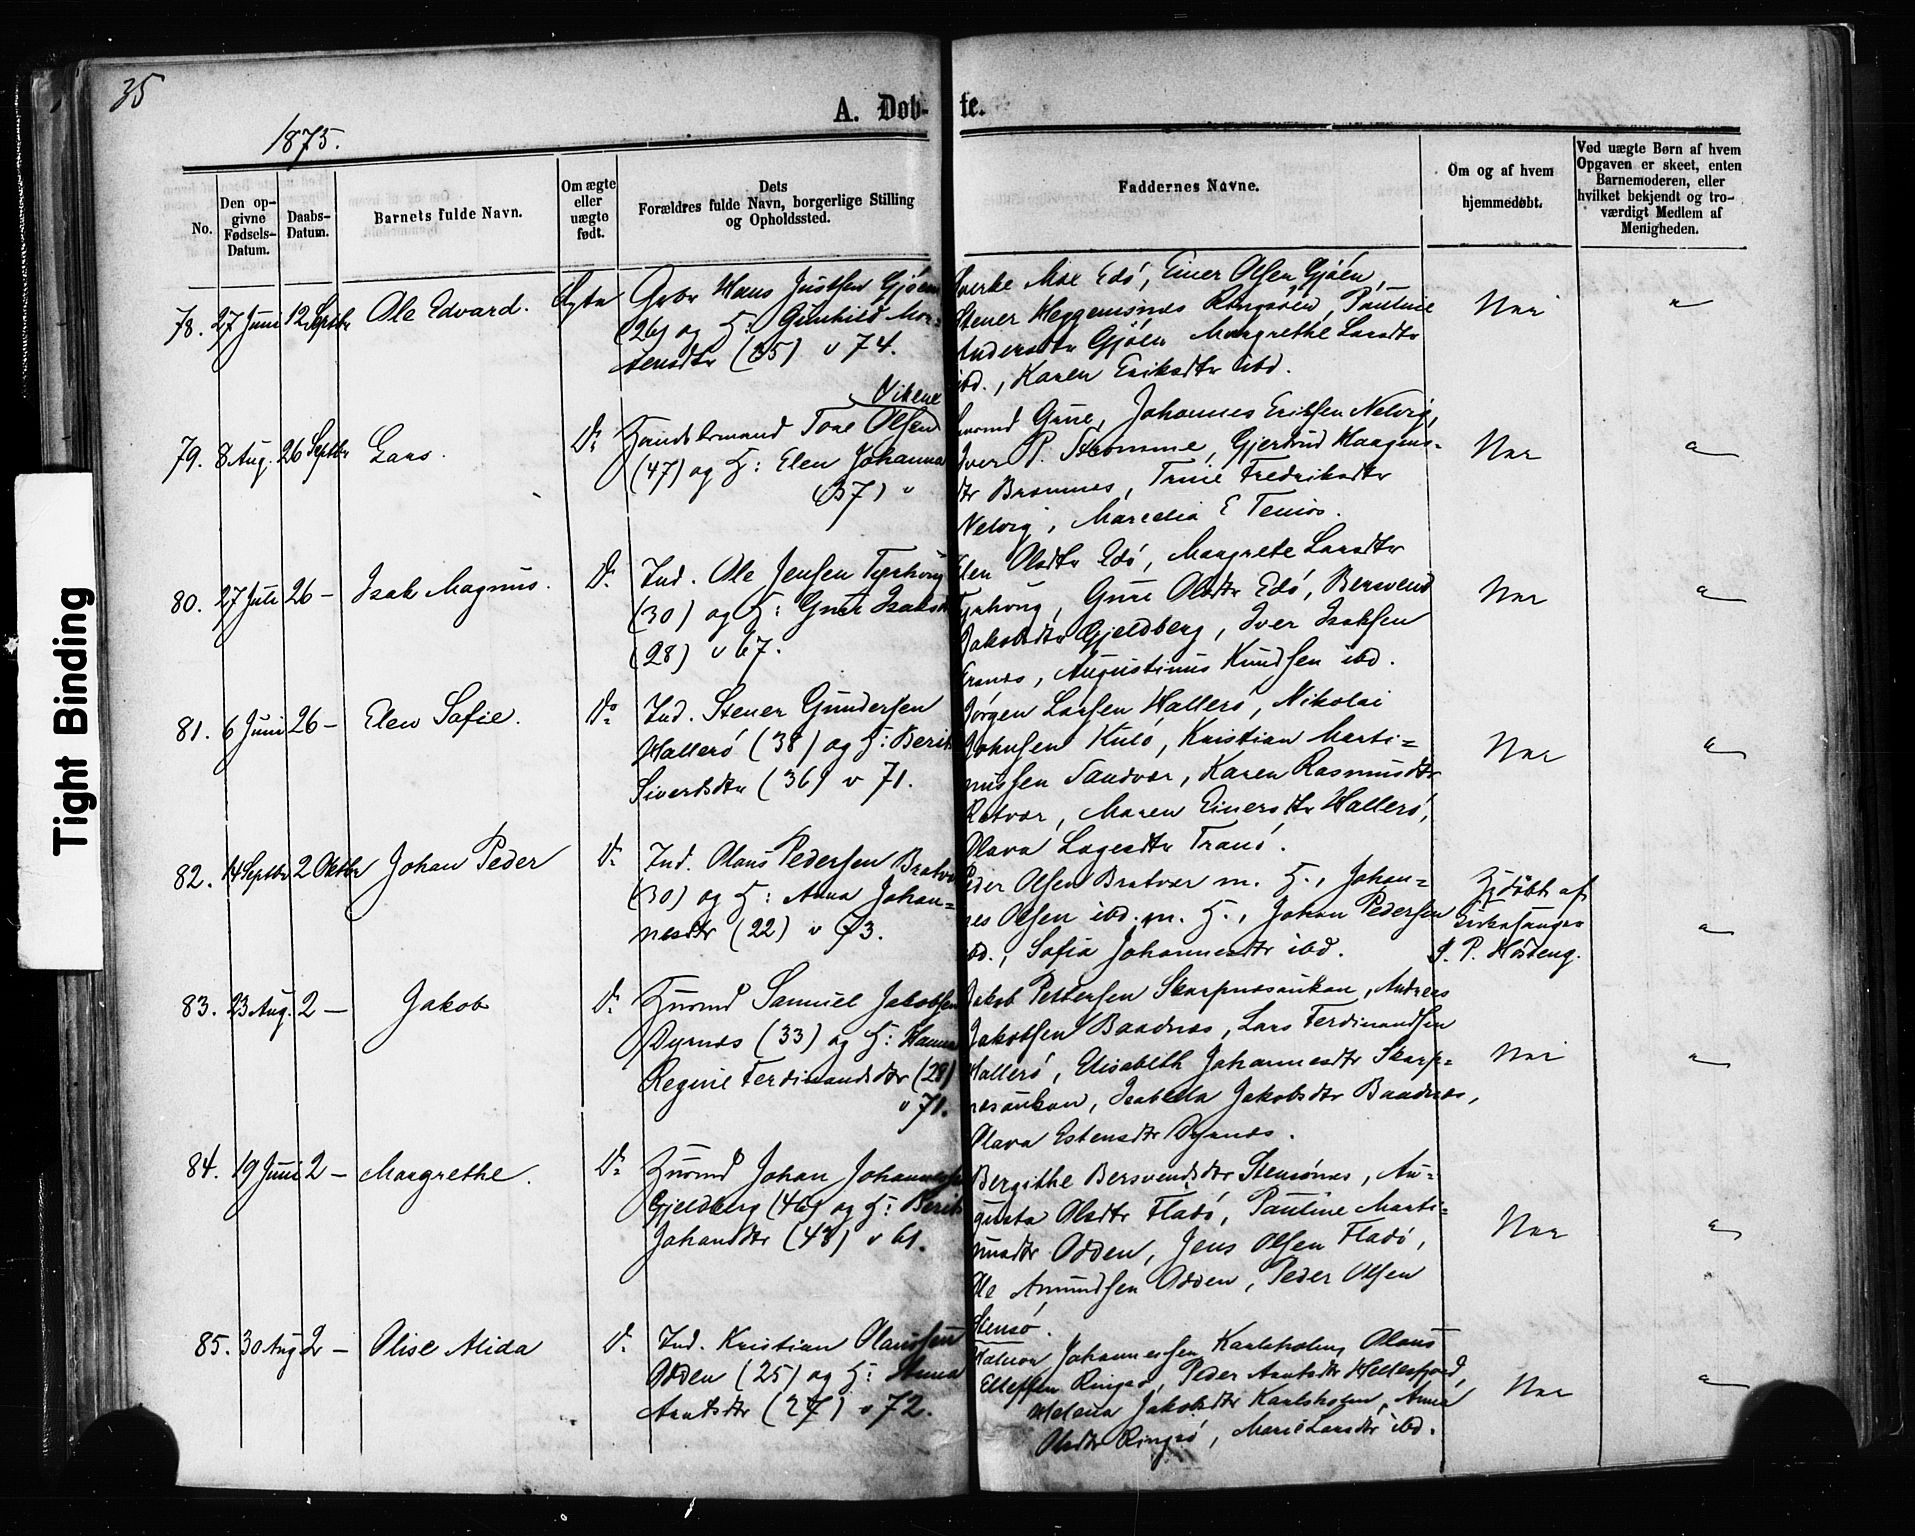 35
1875.
A. Døb-te.
No.
Den op-
givne
Fødsels-
Datum.
Daabs-
Datum.
Barnets fulde Navn.
Om ægte
eller
uægte
født.
Dets
Forældres fulde Navn, borgerlige Stilling
og Opholdssted.
Faddernes Navne.
Om og af hvem
hjemmedøbt.
Ved uægte Børn af hvem
Opgaven er skeet, enten
Barnemoderen, eller
hvilket bekjendt og tro-
værdigt Medlem af
Menigheden.
78. 27 Juni 12 Septbr Ole Edvard. Ægte
Hans Justsen Gjøen
(26) og H: Gunhild Mor-
tensdtr (35) v 74.
Moe Edø, Einer Olsen Gjøen,
Stener Heggemsnes Ringsøen, Pauline
Andersdtr Gjøen Margrethe Larsdtr
ibd., Karen Eriksdtr ibd.
Nei "
79. 8 Aug. 26 Septbr Lars. Do
Vikene
Handelsmand Tore Olsen
(47) og H: Elen Johanna
(37) v
Grue, Johannes Eriksen Nelvig,
Iver P. Strømme, Gjertrud Haagens-
dtr Bremnes, Trine Fredriksdtr
Nelvig, Marcelia E
Nei "
80. 27 Juli 26 - Isak Magnus. Do
Ind. Ole Jensen Tyrhoug
(30) og H: Guru Isaksd
(28) v 67.
Elen Olsdtr Edø, Margrete Larsdtr
Tyrhoug, Gure Olsdtr Edø, Bersvend
Jakobsdtr Gjeldberg, Iver Isaksen
Augustinus Knudsen ibd.
Nei "
81. 6 Juni 26 - Elen Sofie. Do
Ind. Stener Gundersen
Hallerø (38) og H: Berit
Siverdsdtr (36) v 71.
Jørgen Larsen Hallerø, Nikolai
Johnsen Kulø, Kristian Marti-
nussen Sandvær, Karen Rasmusdtr
Ratvær, Maren Einersdtr Hallerø,
Olava Lagesdtr Tranø.
Nei "
82. 14 Septbr 2 Oktbr Johan Peder Do
Ind. Olaus Pedersen Bratvæ
(30) og H: Anna Johan-
nesdtr (22) v 73.
Peder Olsen Bratvær m. H., Johan-
nes Olsen ibd. m. H., Johan Pedersen
ibd., Sofia Johannesdtr ibd.
Hjdøbt af
Kirkesanger
P. Høsteng.
"
83. 23 Aug. 2 - Jakob Do
Husmd Samuel Jakobsen
Dyrnes (33) og H: Hanna
Regine Ferdinandsdtr (28)
v 71.
Jakob Pettersen Skarpnesauken, Andreas
Jakobsen Baadnes, Lars Ferdinandsen
Hallerø, Elisabeth Johannesdtr Skarp-
nesauken, Isabella Jakobsdtr Baadnes,
Olava Estensdtr Dyrnes.
Nei "
84. 19 Juni 2 - Margrethe. Do
Husmd Johan Johannesen
Gjeldberg (46) og H: Berit
Johansdtr (43) v 61.
Bergithe Bersvendsdtr Stensønes, Au-
gusta Olsdtr Fladø, Pauline Marti-
nusdtr Odden, Jens Olsen Fladø,
Ole Amundsen Odden, Peder Olsen
Stensø.
Nei "
85. 30 Aug 2 - Olise Alida Do
Ind. Kristian Olaussen
Odden (25) og H: Anna
Arntsdtr (27) v 72.
Johannessen Karlsholm, Olaus
Ellefsen Ringsø, Peder Arntsdtr Hellesfjord,
Helena Jakobsdtr Karlsholm, Anne
Olsdtr Ringsø, Marie Larsdtr ibd.
Nei "
Tight Binding